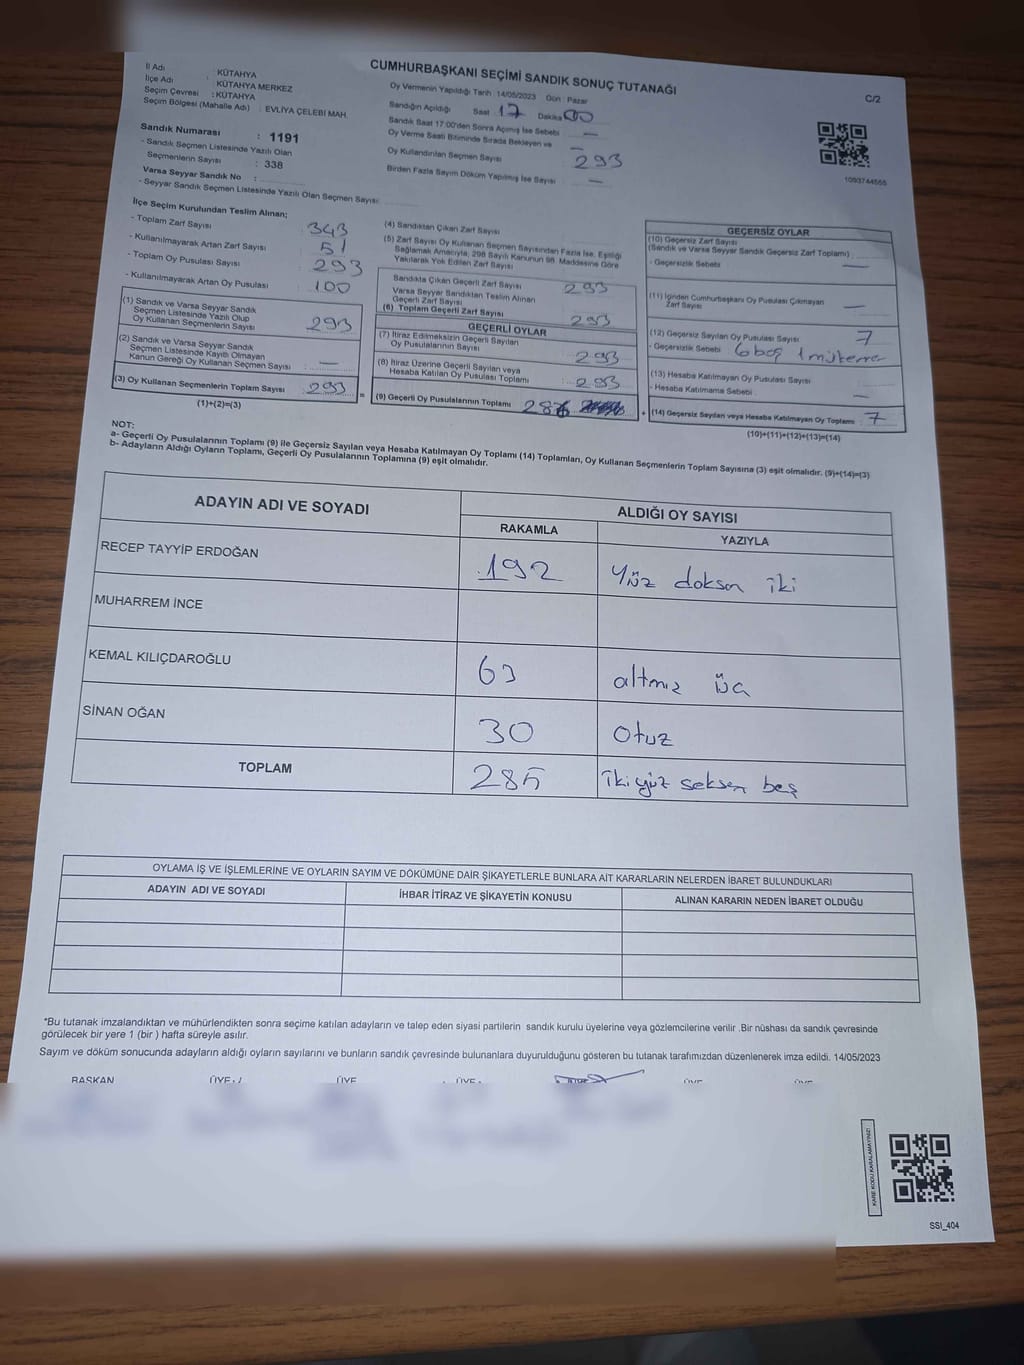 CUMHURBAŞKANI SEÇİMİ SANDIK SONUÇ TUTANAĞI
C/2
İl Adı : KÜTAHYA
İlçe Adı : KÜTAHYA MERKEZ
Seçim Çevresi : KÜTAHYA
Seçim Bölgesi (Mahalle Adı) : EVLİYA ÇELEBİ MAH.
Sandık Numarası : 1191
- Sandık Seçmen Listesinde Yazılı Olan
Seçmenlerin Sayısı : 338
Varsa Seyyar Sandık No :
- Seyyar Sandık Seçmen Listesinde Yazılı Olan Seçmen Sayısı:
Oy Vermenin Yapıldığı Tarih :14/05/2023 Gün : Pazar
Sandığın Açıldığı Saat 17 Dakika 00
Sandık Saat 17:00'den Sonra Açılmış İse Sebebi —
Oy Verme Saati Bitiminde Sırada Bekleyen ve —
Oy Kullandırılan Seçmen Sayısı 293
Birden Fazla Sayım Döküm Yapılmış İse Sayısı —
1093744555
İlçe Seçim Kurulundan Teslim Alınan;
- Toplam Zarf Sayısı 343
- Kullanılmayarak Artan Zarf Sayısı 51
- Toplam Oy Pusulası Sayısı 293
- Kullanılmayarak Artan Oy Pusulası 100
(1) Sandık ve Varsa Seyyar Sandık
Seçmen Listesinde Yazılı Olup
Oy Kullanan Seçmenlerin Sayısı 293
(2) Sandık ve Varsa Seyyar Sandık
Seçmen Listesinde Kayıtlı Olmayan
Kanun Gereği Oy Kullanan Seçmen Sayısı : —
(3) Oy Kullanan Seçmenlerin Toplam Sayısı 293
(1)+(2)=(3)
=
(4) Sandıktan Çıkan Zarf Sayısı
(5) Zarf Sayısı Oy Kullanan Seçmen Sayısından Fazla İse, Eşitliği
Sağlamak Amacıyla, 298 Sayılı Kanunun 98. Maddesine Göre
Yakılarak Yok Edilen Zarf Sayısı
Sandıkta Çıkan Geçerli Zarf Sayısı 293
Varsa Seyyar Sandıktan Teslim Alınan
Geçerli Zarf Sayısı
(6) Toplam Geçerli Zarf Sayısı 293
GEÇERLİ OYLAR
(7) İtiraz Edilmeksizin Geçerli Sayılan
Oy Pusulalarının Sayısı 293
(8) İtiraz Üzerine Geçerli Sayılan veya
Hesaba Katılan Oy Pusulası Toplamı : 293
(9) Geçerli Oy Pusulalarının Toplamı 286
+
GEÇERSİZ OYLAR
(10) Geçersiz Zarf Sayısı
(Sandık ve Varsa Seyyar Sandık Geçersiz Zarf Toplamı)
- Geçersizlik Sebebi —
(11) İçinden Cumhurbaşkanı Oy Pusulası Çıkmayan
Zarf Sayısı —
(12) Geçersiz Sayılan Oy Pusulası Sayısı 7
- Geçersizlik Sebebi 6 boş 1 mükerrer
(13) Hesaba Katılmayan Oy Pusulası Sayısı
- Hesaba Katılmama Sebebi —
(14) Geçersiz Sayılan veya Hesaba Katılmayan Oy Toplamı : 7
(10)+(11)+(12)+(13)=(14)
NOT:
a- Geçerli Oy Pusulalarının Toplamı (9) ile Geçersiz Sayılan veya Hesaba Katılmayan Oy Toplamı (14) Toplamları, Oy Kullanan Seçmenlerin Toplam Sayısına (3) eşit olmalıdır. (9)+(14)=(3)
b- Adayların Aldığı Oyların Toplamı, Geçerli Oy Pusulalarının Toplamına (9) eşit olmalıdır.
ADAYIN ADI VE SOYADI
ALDIĞI OY SAYISI
RAKAMLA YAZIYLA
RECEP TAYYİP ERDOĞAN 192 Yüz doksan iki
MUHARREM İNCE
KEMAL KILIÇDAROĞLU 63 altmız üç
SİNAN OĞAN 30 Otuz
TOPLAM 285 İkiyüz seksen beş
OYLAMA İŞ VE İŞLEMLERİNE VE OYLARIN SAYIM VE DÖKÜMÜNE DAİR ŞİKAYETLERLE BUNLARA AİT KARARLARIN NELERDEN İBARET BULUNDUKLARI
ADAYIN ADI VE SOYADI İHBAR İTİRAZ VE ŞİKAYETİN KONUSU ALINAN KARARIN NEDEN İBARET OLDUĞU
*Bu tutanak imzalandıktan ve mühürlendikten sonra seçime katılan adayların ve talep eden siyasi partilerin sandık kurulu üyelerine veya gözlemcilerine verilir .Bir nüshası da sandık çevresinde
görülecek bir yere 1 (bir ) hafta süreyle asılır.
Sayım ve döküm sonucunda adayların aldığı oyların sayılarını ve bunların sandık çevresinde bulunanlara duyurulduğunu gösteren bu tutanak tarafımızdan düzenlenerek imza edildi. 14/05/2023
BAŞKAN ÜYE ÜYE ÜYE ÜYE ÜYE
KARE KODU KARALAMAYINIZ!
SSI_404